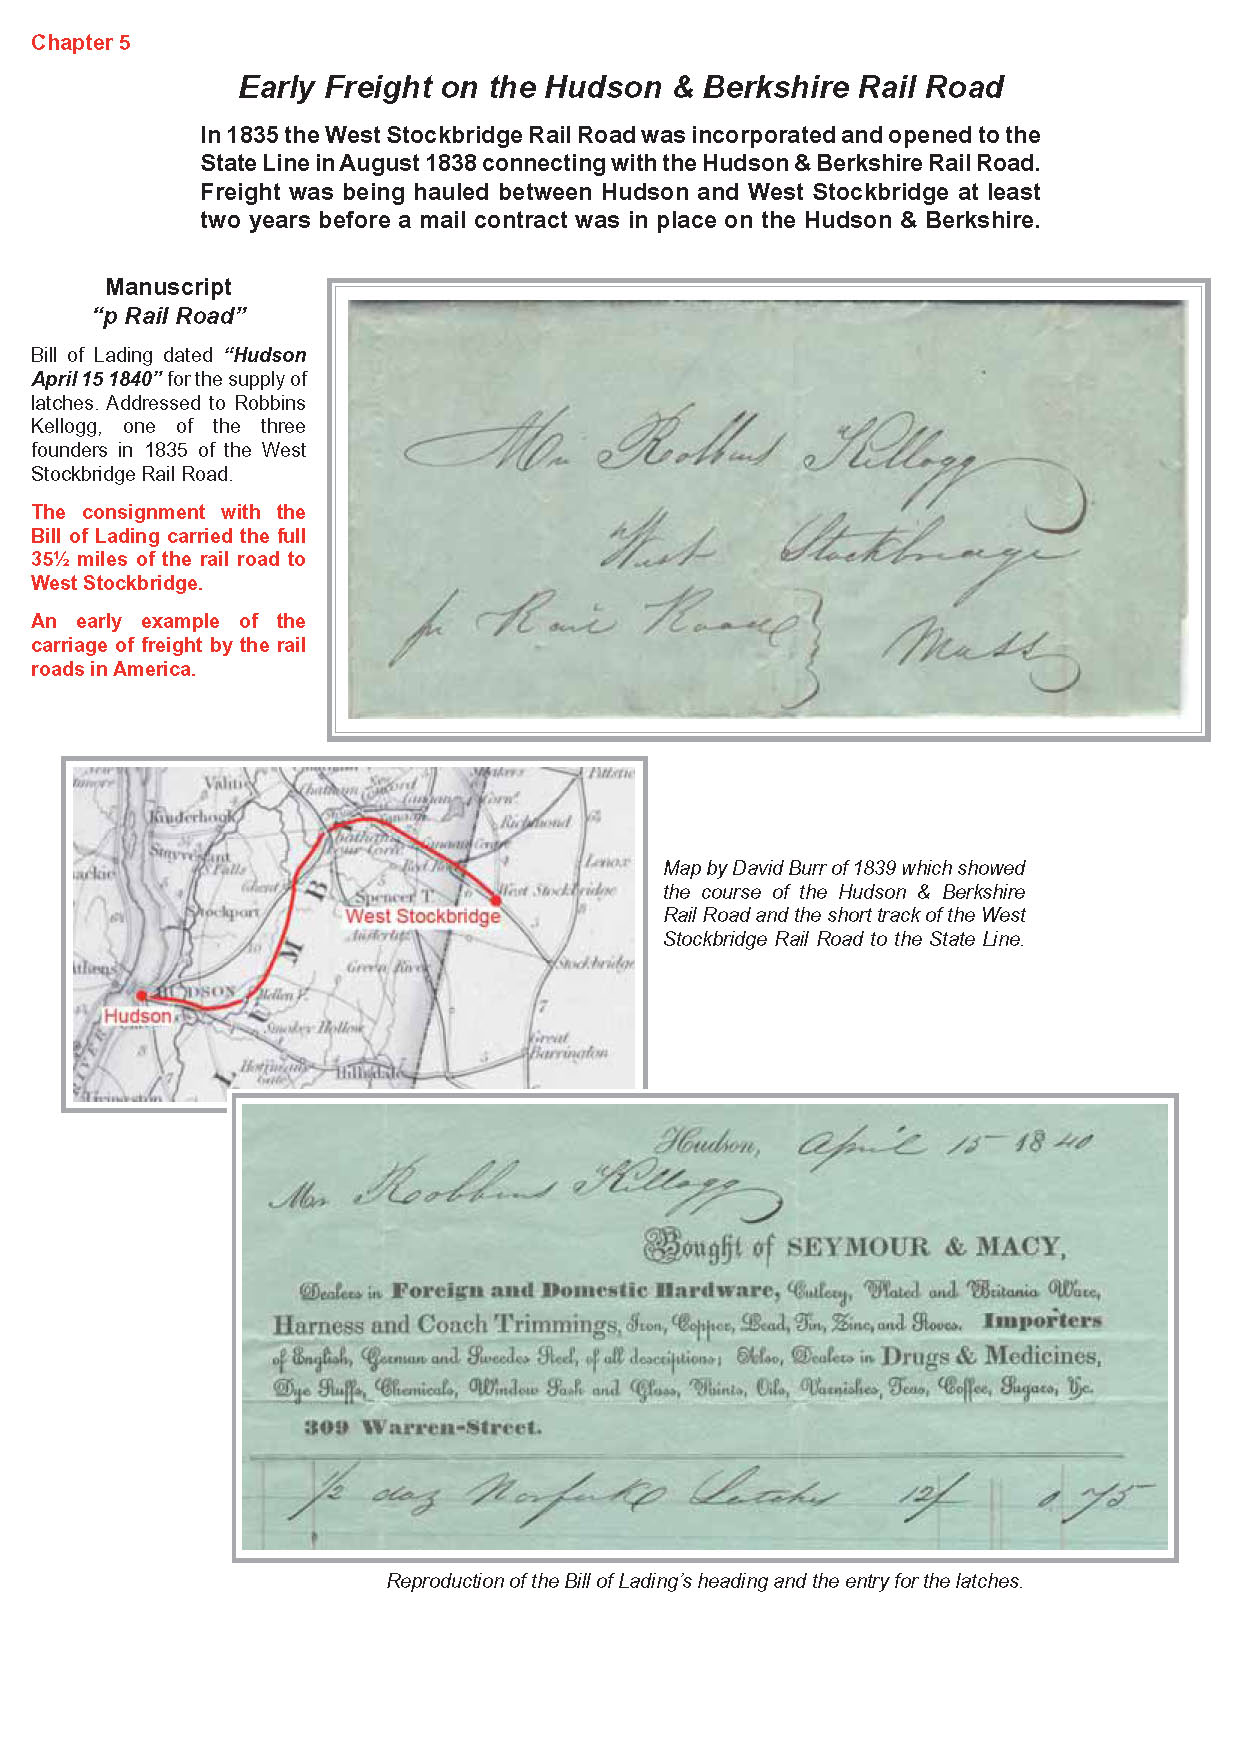 Chapter 5
Early Freight on the Hudson & Berkshire Rail Road
In 1835 the West Stockbridge Rail Road was incorporated and opened to the
State Line in August 1838 connecting with the Hudson & Berkshire Rail Road.
Freight was being hauled between Hudson and West Stockbridge at least
two years before a mail contract was in place on the Hudson & Berkshire.
Manuscript
“p Rail Road”
Bill of Lading dated “Hudson
April 15 1840” for the supply of
latches. Addressed to Robbins
Kellogg, one of the three
founders in 1835 of the West
Stockbridge Rail Road.
The consignment with the
Bill of Lading carried the full
35½ miles of the rail road to
West Stockbridge.
An early example of the
carriage of freight by the rail
roads in America.
Mr Robbins Kellogg
West Stockbridge
pr Rail Road
Mass
Valitie
Kinderhook
Chatham
Richmond
Lenox
Falls
Ghent
Stockport
Spencer T.
West Stockbridge
West Stockbridge
Green River
Stockbridge
HUDSON
Mellen V.
Hudson
Smokey Hollow
Great
Barrington
Hillsdale
Map by David Burr of 1839 which showed
the course of the Hudson & Berkshire
Rail Road and the short track of the West
Stockbridge Rail Road to the State Line.
Hudson, April 15 1840
Mr Robbins Kellogg
Bought of SEYMOUR & MACY,
Dealers in Foreign and Domestic Hardware, Cutlery, Plated and Britania Ware,
Harness and Coach Trimmings, Iron, Copper, Lead, Tin, Zinc, and Stoves. Importers
of English, German and Swedes Steel, of all descriptions; Also, Dealers in Drugs & Medicines,
Dye Stuffs, Chemicals, Window Sash and Glass, Paints, Oils, Varnishes, Teas, Coffee, Sugars, &c.
309 Warren-Street.
1/2 doz Norfolk Latches 12/ 0.75
Reproduction of the Bill of Lading’s heading and the entry for the latches.